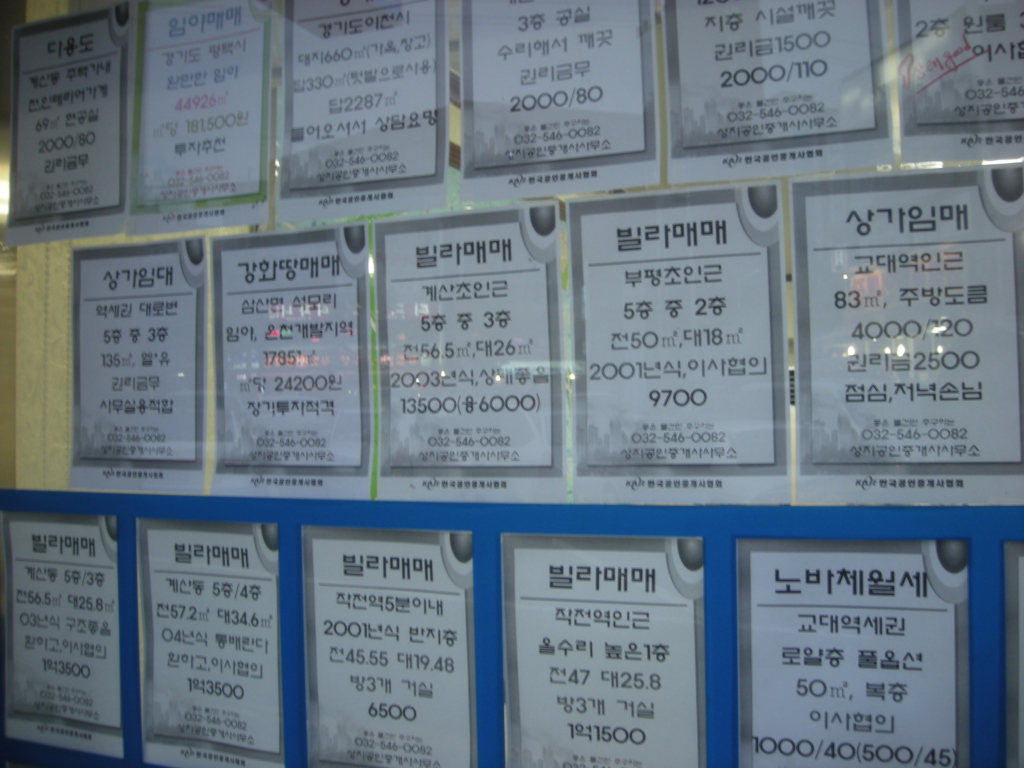 다용도
계산동 주택가내
천연페리어가게
69㎡ 현공실
2000/80
권리금무
032-546-0082
성지공인중개사사무소
한국공인중개사협회
임야매매
경기도 평택시
완만한 임야
44926㎡
㎡당 181,500원
투자추천
032-546-0082
성지공인중개사사무소
한국공인중개사협회
경기도이천시
대지660㎡(가옥,창고)
답330㎡(텃밭으로사용)
답2287㎡
들어오셔서 상담요망
032-546-0082
성지공인중개사사무소
한국공인중개사협회
3층 공실
수리해서 깨끗
권리금무
2000/80
032-546-0082
성지공인중개사사무소
한국공인중개사협회
지층 시설깨끗
권리금1500
2000/110
032-546-0082
성지공인중개사사무소
한국공인중개사협회
2층 원룸 3
이사협
032-546
성지공인중개사
한국공인중개
상가임대
역세권 대로변
5층 중 3층
135㎡, 엘·유
권리금무
사무실용적합
032-546-0082
성지공인중개사사무소
한국공인중개사협회
강화땅매매
삼산면 석모리
임야, 온천개발지역
17851㎡
㎡당 24200원
장기투자적격
032-546-0082
성지공인중개사사무소
한국공인중개사협회
빌라매매
계산초인근
5층 중 3층
전56.5㎡,대26㎡
2003년식,상태좋음
13500(융6000)
032-546-0082
성지공인중개사사무소
한국공인중개사협회
빌라매매
부평초인근
5층 중 2층
전50㎡,대18㎡
2001년식,이사협의
9700
032-546-0082
성지공인중개사사무소
한국공인중개사협회
상가임매
교대역인근
83㎡, 주방도큼
4000/120
권리금2500
점심,저녁손님
032-546-0082
성지공인중개사사무소
한국공인중개사협회
빌라매매
계산동 5층/3층
전56.5㎡ 대25.8㎡
03년식 구조좋음
환하고,이사협의
1억3500
032-546-0082
성지공인중개사사무소
한국공인중개사협회
빌라매매
계산동 5층/4층
전57.2㎡ 대34.6㎡
04년식 통베란다
환하고,이사협의
1억3500
032-546-0082
성지공인중개사사무소
한국공인중개사협회
빌라매매
작전역5분이내
2001년식 반지층
전45.55 대19.48
방3개 거실
6500
032-546-0082
성지공인중개사사무소
빌라매매
작전역인근
올수리 높은1층
전47 대25.8
방3개 거실
1억1500
032-546-0082
노바체월세
교대역세권
로얄층 풀옵션
50㎡, 복층
이사협의
1000/40(500/45)